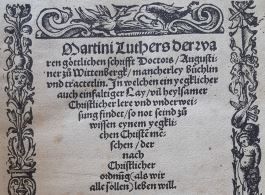 Martini Luthers der wa
ren göttlichen schrifft Doctors / Augusti-
ner zů Wittenbergk / mancherley Büchlin
vnd tractetlin. In welchen ein yegklicher
auch einfaltiger Lay / vil heylsamer
Christlicher lere vnd vnderwei-
sung findet / so not seind zů
wissen eynem yegkli-
chen Christē mē-
schen / der
nach
Christlicher
ordnūg (als wir
alle söllen) leben will.